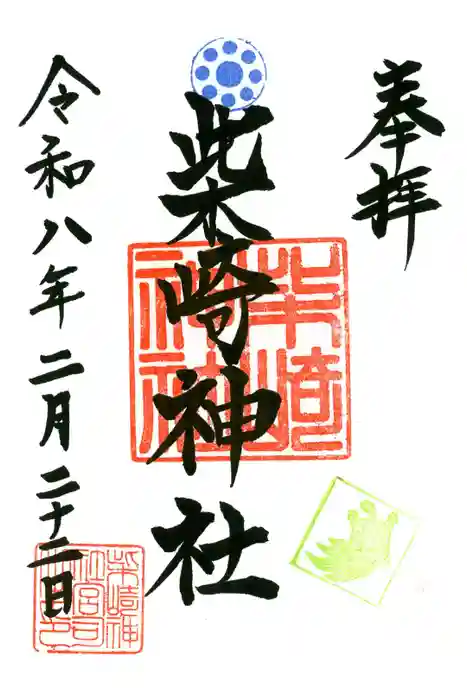 奉拝
柴崎神社
柴崎
神社
令和八年二月二十二日
柴崎神
社宮司
之印